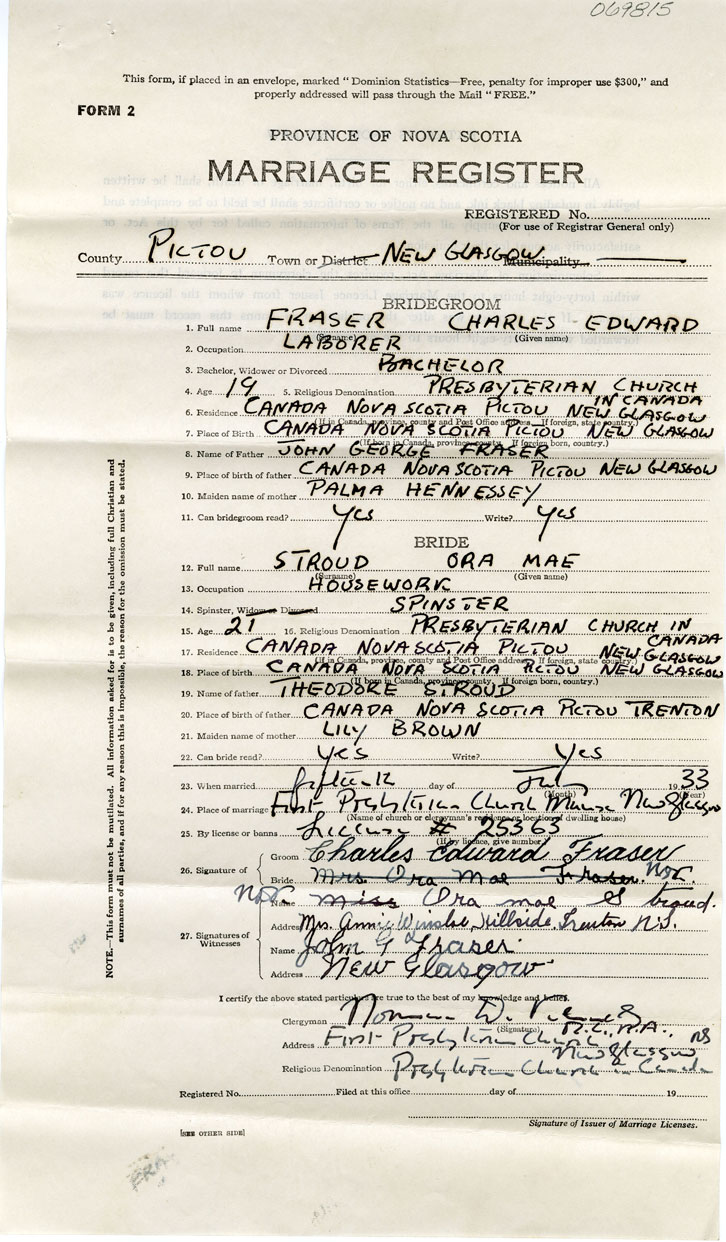 069815
This form, if placed in an envelope, marked "Dominion Statistics—Free, penalty for improper use $300," and
properly addressed will pass through the Mail "FREE."
FORM 2
PROVINCE OF NOVA SCOTIA
MARRIAGE REGISTER
REGISTERED No.
(For use of Registrar General only)
County PICTOU Town or District NEW GLASGOW Municipality
BRIDEGROOM
1. Full name FRASER CHARLES EDWARD
(Surname) (Given name)
2. Occupation LABORER
3. Bachelor, Widower or Divorced BACHELOR
4. Age 19 5. Religious Denomination PRESBYTERIAN CHURCH
IN CANADA
6. Residence CANADA NOVA SCOTIA PICTOU NEW GLASGOW
(If in Canada, province, county and Post Office address. If foreign, state country.)
7. Place of Birth CANADA NOVA SCOTIA PICTOU NEW GLASGOW
(If born in Canada, province, county. If foreign born, country.)
8. Name of Father JOHN GEORGE FRASER
9. Place of birth of father CANADA NOVA SCOTIA PICTOU NEW GLASGOW
10. Maiden name of mother PALMA HENNESSEY
11. Can bridegroom read? Yes Write? Yes
BRIDE
12. Full name STROUD ORA MAE
(Surname) (Given name)
13. Occupation HOUSEWORK
14. Spinster, Widow or Divorced SPINSTER
15. Age 21 16. Religious Denomination PRESBYTERIAN CHURCH IN
CANADA
17. Residence CANADA NOVA SCOTIA PICTOU NEW GLASGOW
(If in Canada, province, county and Post Office address. If foreign, state country.)
18. Place of birth CANADA NOVA SCOTIA PICTOU NEW GLASGOW
(If born in Canada, province, county. If foreign born, country.)
19. Name of father THEODORE STROUD
20. Place of birth of father CANADA NOVA SCOTIA PICTOU TRENTON
21. Maiden name of mother LILY BROWN
22. Can bride read? Yes Write? Yes
23. When married fifteenth day of July 1933
(Month) (Year)
24. Place of marriage First Presbyterian Church Manse New Glasgow
(Name of church or clergyman's residence or location of dwelling house)
25. By license or banns License # 25363
(If by licence, give number)
26. Signature of Groom Charles Edward Fraser
Bride Mrs Ora Mae Fraser. Not.
Not Name Miss Ora mae Stroud.
Address Mrs. Annie Winslow, Hillside, Trenton N.S.
27. Signatures of Witnesses
Name John G Fraser.
Address New Glasgow
I certify the above stated particulars are true to the best of my knowledge and belief.
Clergyman Norman D.
(Signature)
Address First Presbyterian Church
New Glasgow NS
Religious Denomination Presbyterian Church in Canada
Registered No. Filed at this office day of 19
Signature of Issuer of Marriage Licenses.
[SEE OTHER SIDE]
NOTE.—This form must not be mutilated. All information asked for is to be given, including full Christian and
surnames of all parties, and if for any reason this is impossible, the reason for the omission must be stated.